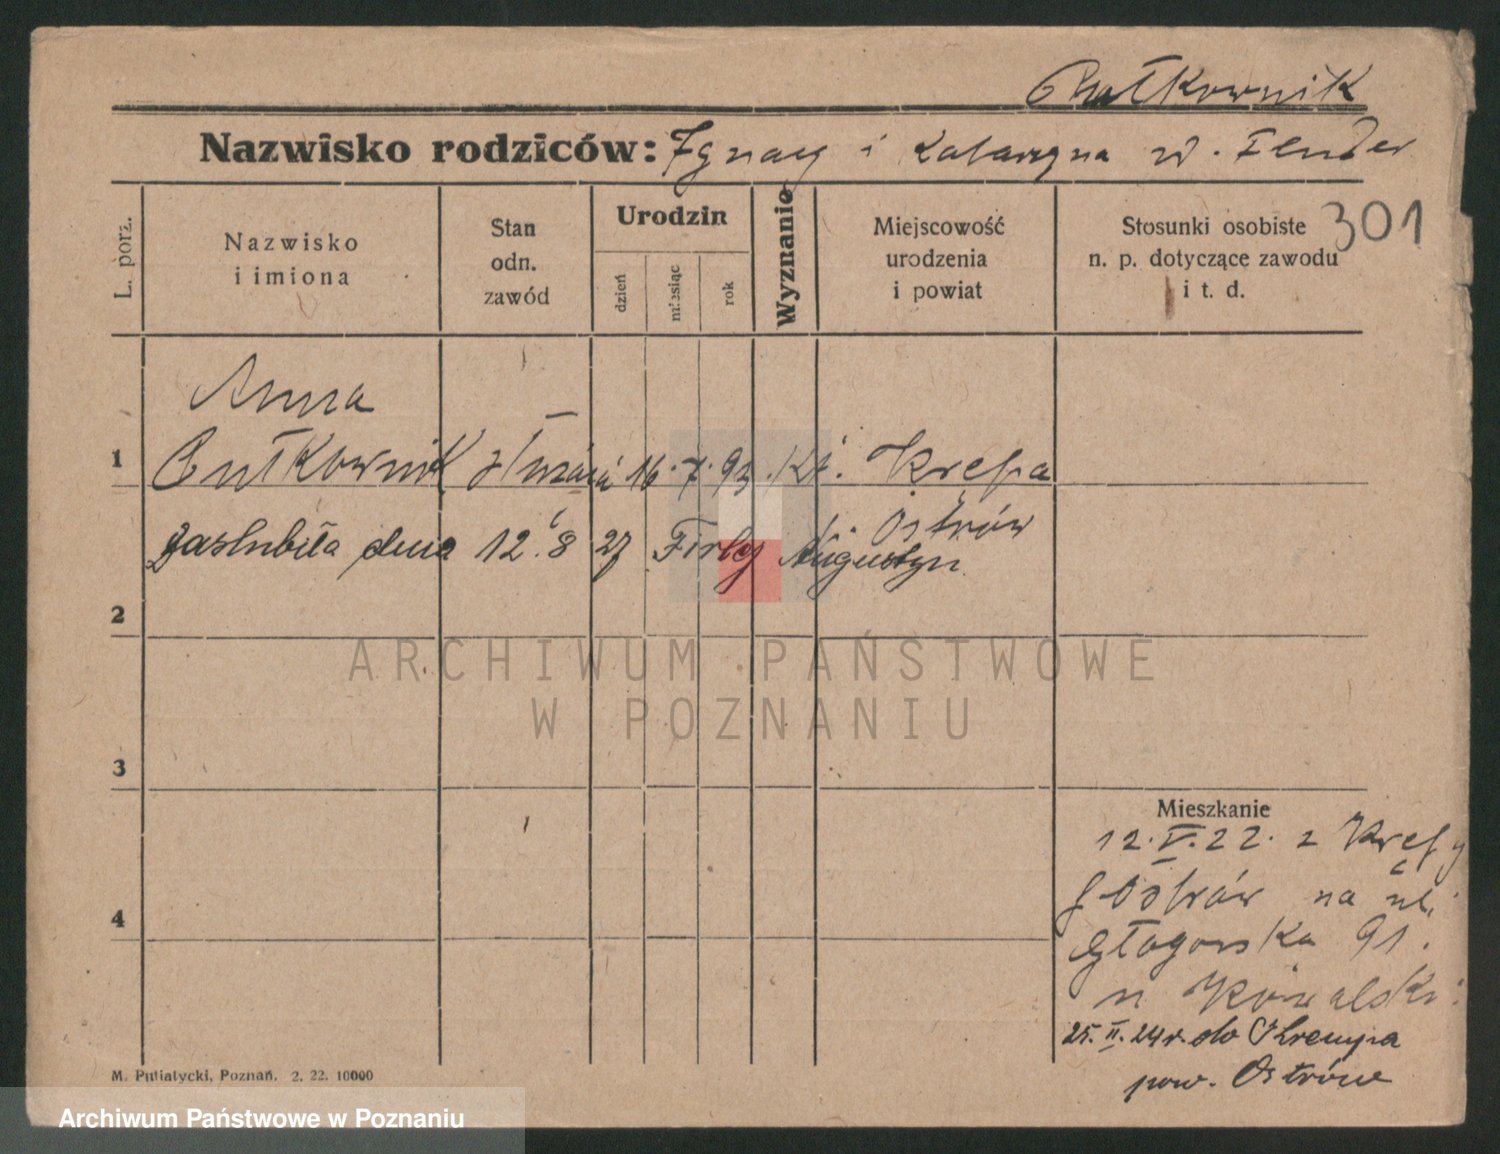 Pułkownik
Nazwisko rodziców: Ignacy i Katarzyna
301
L. porz.
Nazwisko
i imiona
Stan
odn.
zawód
Urodzin
dzień
miesiąc
rok
Wyznanie
Miejscowość
urodzenia
i powiat
Stosunki osobiste
n. p. dotyczące zawodu
i t. d.
Anna
1 Pułkownik służąca 16. 7. 93. kt. Krępa
Ostrów
zaślubiła dnia 12. 8 27 Firlej Augustyn
2
ARCHIWUM PAŃSTWOWE
W POZNANIU
3
Mieszkanie
12. V. 22. z Krępy
p Ostrów na ul.
Głogowska 91.
u Kowalski
4
25. II. 24 r. do Krempa
pow. Ostrów
M. Putiatycki, Poznań. 2. 22. 10000
Archiwum Państwowe w Poznaniu